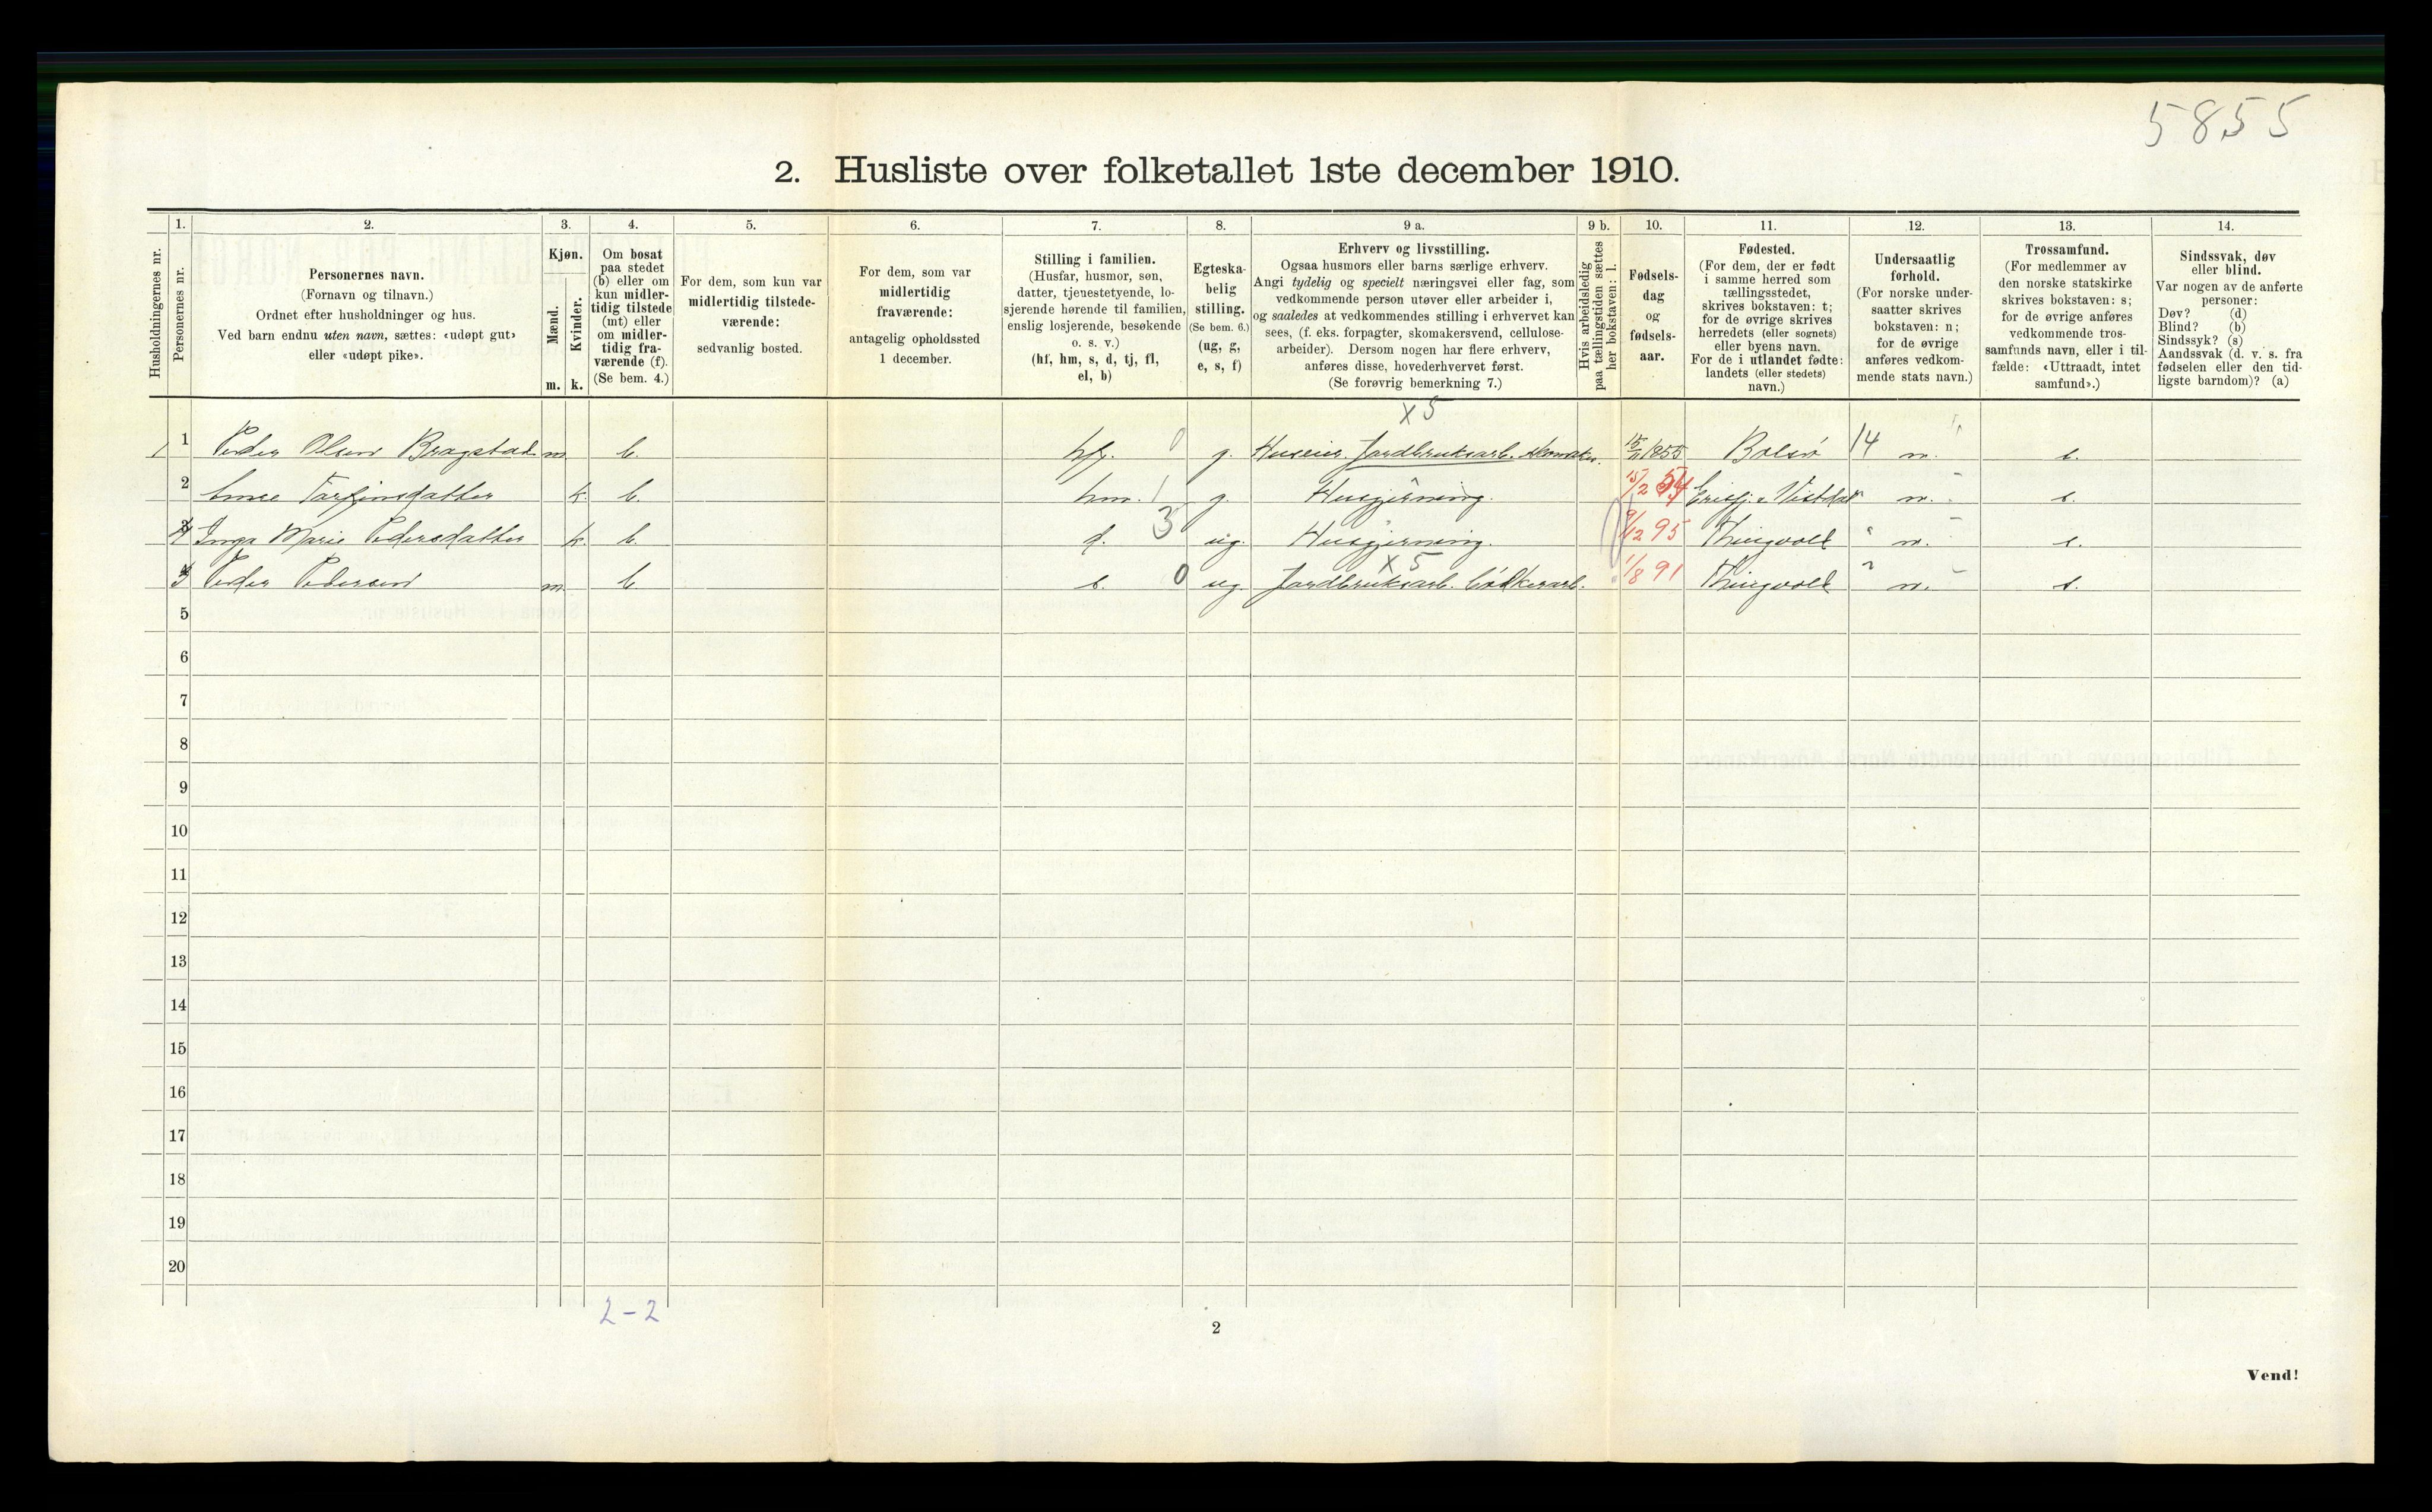 5855
2. Husliste over folketallet 1ste december 1910.
Husholdningernes nr.
1.
Personernes nr.
2.
Personernes navn.
(Fornavn og tilnavn.)
Ordnet efter husholdninger og hus.
Ved barn endnu uten navn, sættes: «udøpt gut»
eller «udøpt pike».
3.
Kjøn.
Mænd.
Kvinder.
m. k.
4.
Om bosat
paa stedet
(b) eller om
kun midler-
tidig tilstede
(mt) eller
om midler-
tidig fra-
værende (f).
(Se bem. 4.)
5.
For dem, som kun var
midlertidig tilstede-
værende:
sedvanlig bosted.
6.
For dem, som var
midlertidig
fraværende:
antagelig opholdssted
1 december.
7.
Stilling i familien.
(Husfar, husmor, søn,
datter, tjenestetyende, lo-
sjerende hørende til familien,
enslig losjerende, besøkende
o. s. v.)
(hf, hm, s, d, tj, fl,
el, b)
8.
Egteska-
belig
stilling.
(Se bem. 6.)
(ug, g,
e, s, f)
9 a.
Erhverv og livsstilling.
Ogsaa husmors eller barns særlige erhverv.
Angi tydelig og specielt næringsvei eller fag, som
vedkommende person utøver eller arbeider i,
og saaledes at vedkommendes stilling i erhvervet kan
sees, (f. eks. forpagter, skomakersvend, cellulose-
arbeider). Dersom nogen har flere erhverv,
anføres disse, hovederhvervet først.
(Se forøvrig bemerkning 7.)
9 b.
Hvis arbeidsledig
paa tællingstiden sættes
her bokstaven: l.
10.
Fødsels-
dag
og
fødsels-
aar.
11.
Fødested.
(For dem, der er født
i samme herred som
tællingsstedet,
skrives bokstaven: t;
for de øvrige skrives
herredets (eller sognets)
eller byens navn.
For de i utlandet fødte:
landets (eller stedets)
navn.)
12.
Undersaatlig
forhold.
(For norske under-
saatter skrives
bokstaven: n;
for de øvrige
anføres vedkom-
mende stats navn.)
13.
Trossamfund.
(For medlemmer av
den norske statskirke
skrives bokstaven: s;
for de øvrige anføres
vedkommende tros-
samfunds navn, eller i til-
fælde: «Uttraadt, intet
samfund».)
14.
Sindssvak, døv
eller blind.
Var nogen av de anførte
personer:
Døv? (d)
Blind? (b)
Sindssyk? (s)
Aandssvak (d. v. s. fra
fødselen eller den tid-
ligste barndom)? (a)
x 5
1 1 Peder Olsen Bragstad m. b. hf. 0 g. Huseier. Jordbruksarb. skomaker. 15/11 1855 Bolsø 14 n. s.
2 Tarfinsdatter k. b. hm. 1 g. Husgjerning. 15/2 54 Vistdal " n. s.
3 Inga Marie Pedersdatter k. b. d. 3 ug. Husgjerning. 9/12 95 Thingvold " n. s.
x 5
4 Peder Pedersen m. b. s. 0 ug. Jordbruksarb. bødkerarb. 1/8 91 Thingvold " n. s.
5
6
7
8
9
10
11
12
13
14
15
16
17
18
19
20
2-2
2
Vend!